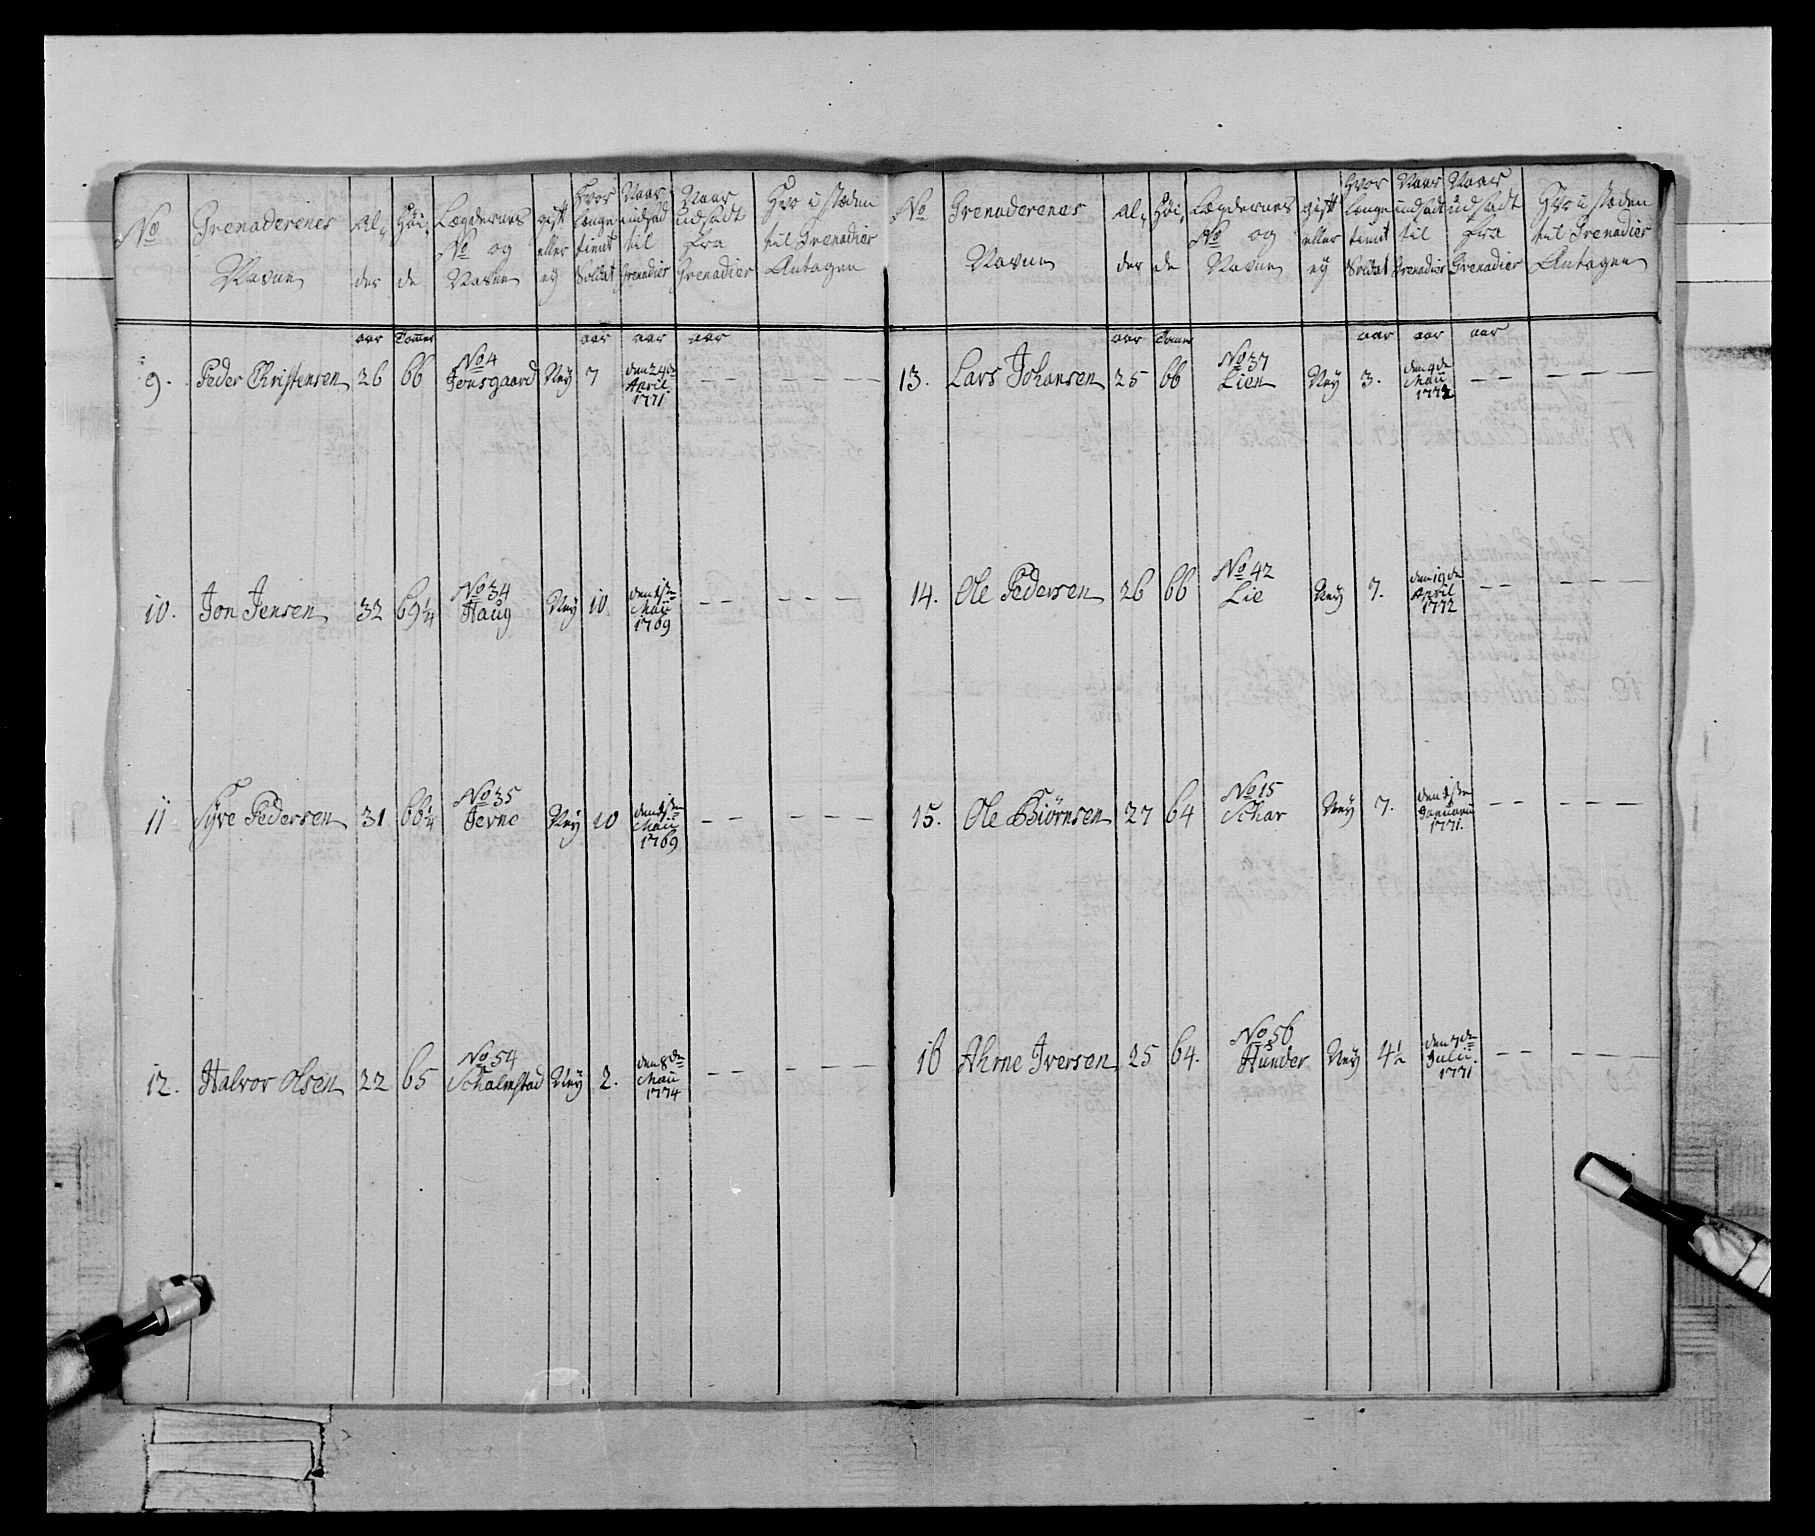 No Grenaderenes Navne Al,, der Høi,, de Lægdernes No og Navne gift eller ey Hvor længe tient Soldat Naar udsadt til Grenadier Naar udsadt fra Grenadier Hvo i stæden til Grenadier Antagen
aar Tommer aar aar aar
9. Peder Christensen 26 66 No 4 Jonsgaard Ney 7 den 24de April 1771 — — — — —
10. Jon Jensen 32 69¼ No 34 Haug Ney 10. den 1ste Maii 1769 — — — — —
11 Syve Pedersen 31 66¼ No 35 Jevne Ney 10 den 1ste Maii 1769 — — — — —
12. Halvor Olsen 22 65 No 54 Schalmstad Ney 2. den 8de Maii 1774 — — — — —
No Grenaderenes Navne Al,, der Høi,, de Lægdernes No og Navne gift eller ey Hvor længe tient Soldat Naar udsadt til Grenadier Naar udsadt fra Grenadier Hvo i stæden til Grenadier Antagen
aar Tomer aar aar aar
13. Lars Johansen 25 66 No 37 Lien Ney 3. den 4de Maii — — — — —
14. Ole Pedersen 26 66 No 42 Lie Ney 7. den 19de April 1772 — — — — —
15. Ole Biørnsen 27 64 No 15 Schar Ney 7. den 1ste Januarii 1771. — — — — —
16 Ahrne Iversen 25 64. No 56 Hunder Ney 4½ den 7de Julii. 1771 — — — — —